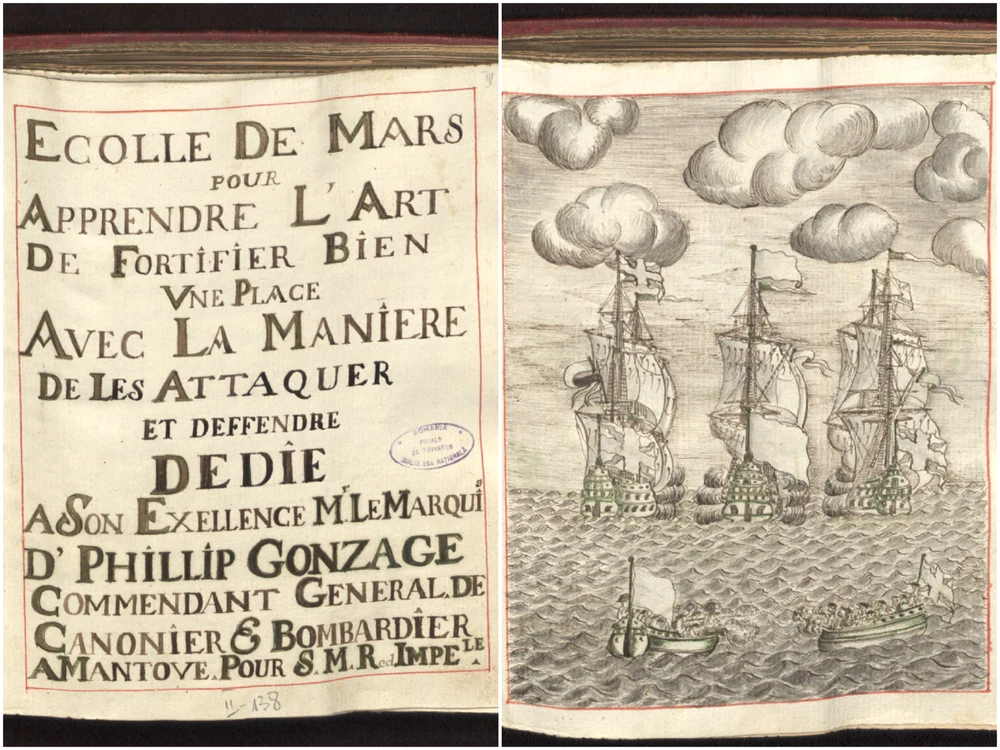 ECOLLE DE MARS
POUR
APPRENDRE L'ART
DE FORTÎFÎER BÎEN
VNE PLACE
AVEC LA MANÎERE
DE LES ATTAQUER
ET DEFFENDRE
DEDÎE
A SON EXELLENCE Mr. LE MARQUÎS
D' PHÎLLÎP GONZAGE
COMMENDANT GENERAL.DE
CANONÎER & BOMBARDÎER
A MANTOVE.POUR S.M.R et IMPELE
ROMANIA
NATIONALA
II-138